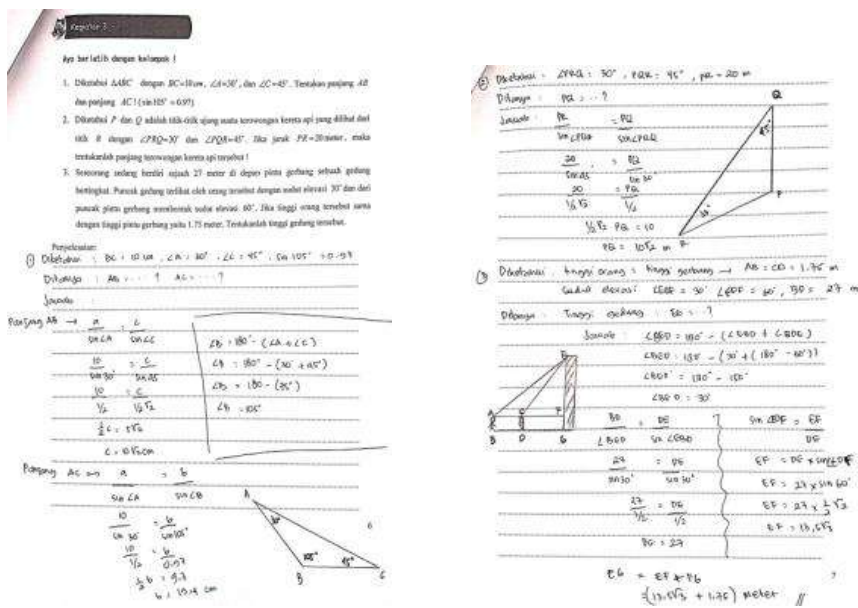 Kegiatan 3
Ayo berlatih dengan kelompok !
1. Diketahui ΔABC dengan BC=10 cm, ∠A=30°, dan ∠C=45°. Tentukan panjang AB
dan panjang AC ! (sin 105° = 0.97)
2. Diketahui P dan Q adalah titik-titik ujung suatu terowongan kereta api yang dilihat dari
titik R dengan ∠PRQ=30° dan ∠PQR=45°. Jika jarak PR=20 meter, maka
tentukanlah panjang terowongan kereta api tersebut !
3. Seseorang sedang berdiri sejauh 27 meter di depan pintu gerbang sebuah gedung
bertingkat. Puncak gedung terlihat oleh orang tersebut dengan sudut elevasi 30° dan dari
puncak pintu gerbang membentuk sudut elevasi 60°. Jika tinggi orang tersebut sama
dengan tinggi pintu gerbang yaitu 1.75 meter. Tentukanlah tinggi gedung tersebut.
Penyelesaian:
① Diketahui : BC = 10 cm , ∠A = 30° , ∠C = 45° , sin 105° = 0.97
Ditanya : AB = ... ? AC = ... ?
Jawab :
Panjang AB → a = c
sin ∠A sin ∠C
10 = c
sin 30° sin 45
10 = c
1/2 1/2√2
1/2 c = 5√2
c = 10√2 cm
∠B = 180° - (∠A + ∠C)
∠B = 180° - (30° + 45°)
∠B = 180 - (75°)
∠B = 105°
Panjang AC → a = b
sin ∠A sin ∠B
10 = b
sin 30° sin 105°
10 = b
1/2 0.97
1/2 b = 9.7
b = 19.4 cm
A
30°
105°
45°
B
C
② Diketahui : ∠PRQ = 30° , PQR = 45° , PR = 20 m
Ditanya : PQ = ... ?
Jawab : PR = PQ
sin ∠PQR sin ∠PRQ
20 = PQ
sin 45 sin 30°
20 = PQ
1/2√2 1/2
1/2√2 PQ = 10
PQ = 10√2 m
Q
45°
P
30°
R
③ Diketahui : tinggi orang = tinggi gerbang → AB = CD = 1.75 m
Sudut elevasi ∠EBD = 30° ∠EDF = 60° , BD = 27 m
Ditanya : Tinggi gedung : EG = ... ?
Jawab : ∠BED = 180° - (∠EBD + ∠BDE)
∠BED = 180 - (30° + (180° - 60°))
∠BED = 180° - 150°
∠BED = 30°
E
A
C
F
B
D
G
BD = DE
∠BED sin ∠EBD
27 = DE
sin 30° sin 30°
27 = DE
1/2 1/2
DE = 27
sin ∠EDF = EF
DE
EF = DE x sin ∠EDF
EF = 27 x sin 60°
EF = 27 x 1/2 √3
EF = 13,5√3
EG = EF + FG
= (13.5√3 + 1.75) meter //